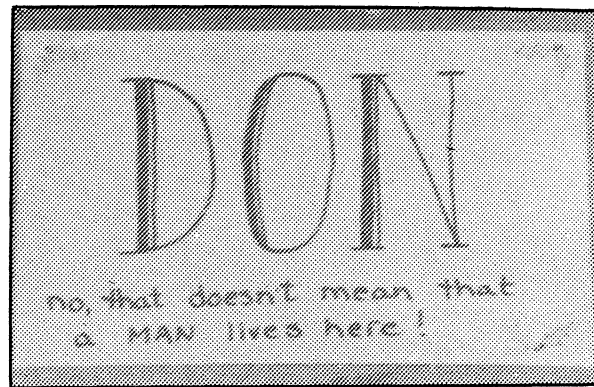 DON
no, that doesn't mean that
a MAN lives here!